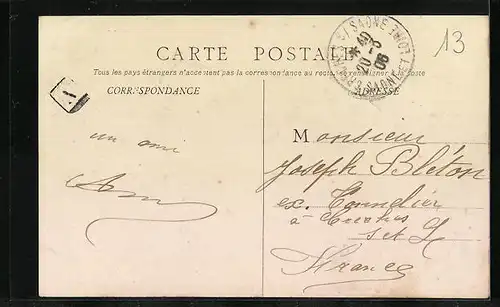 13
CARTE POSTALE
Tous les pays étrangers n'acceptent pas la correspondance au recto, se renseigner à la poste
CORRESPONDANCE
ADRESSE
20-3
06
un ami
Monsieur
Joseph Bléton
ex.
à
S et L
France